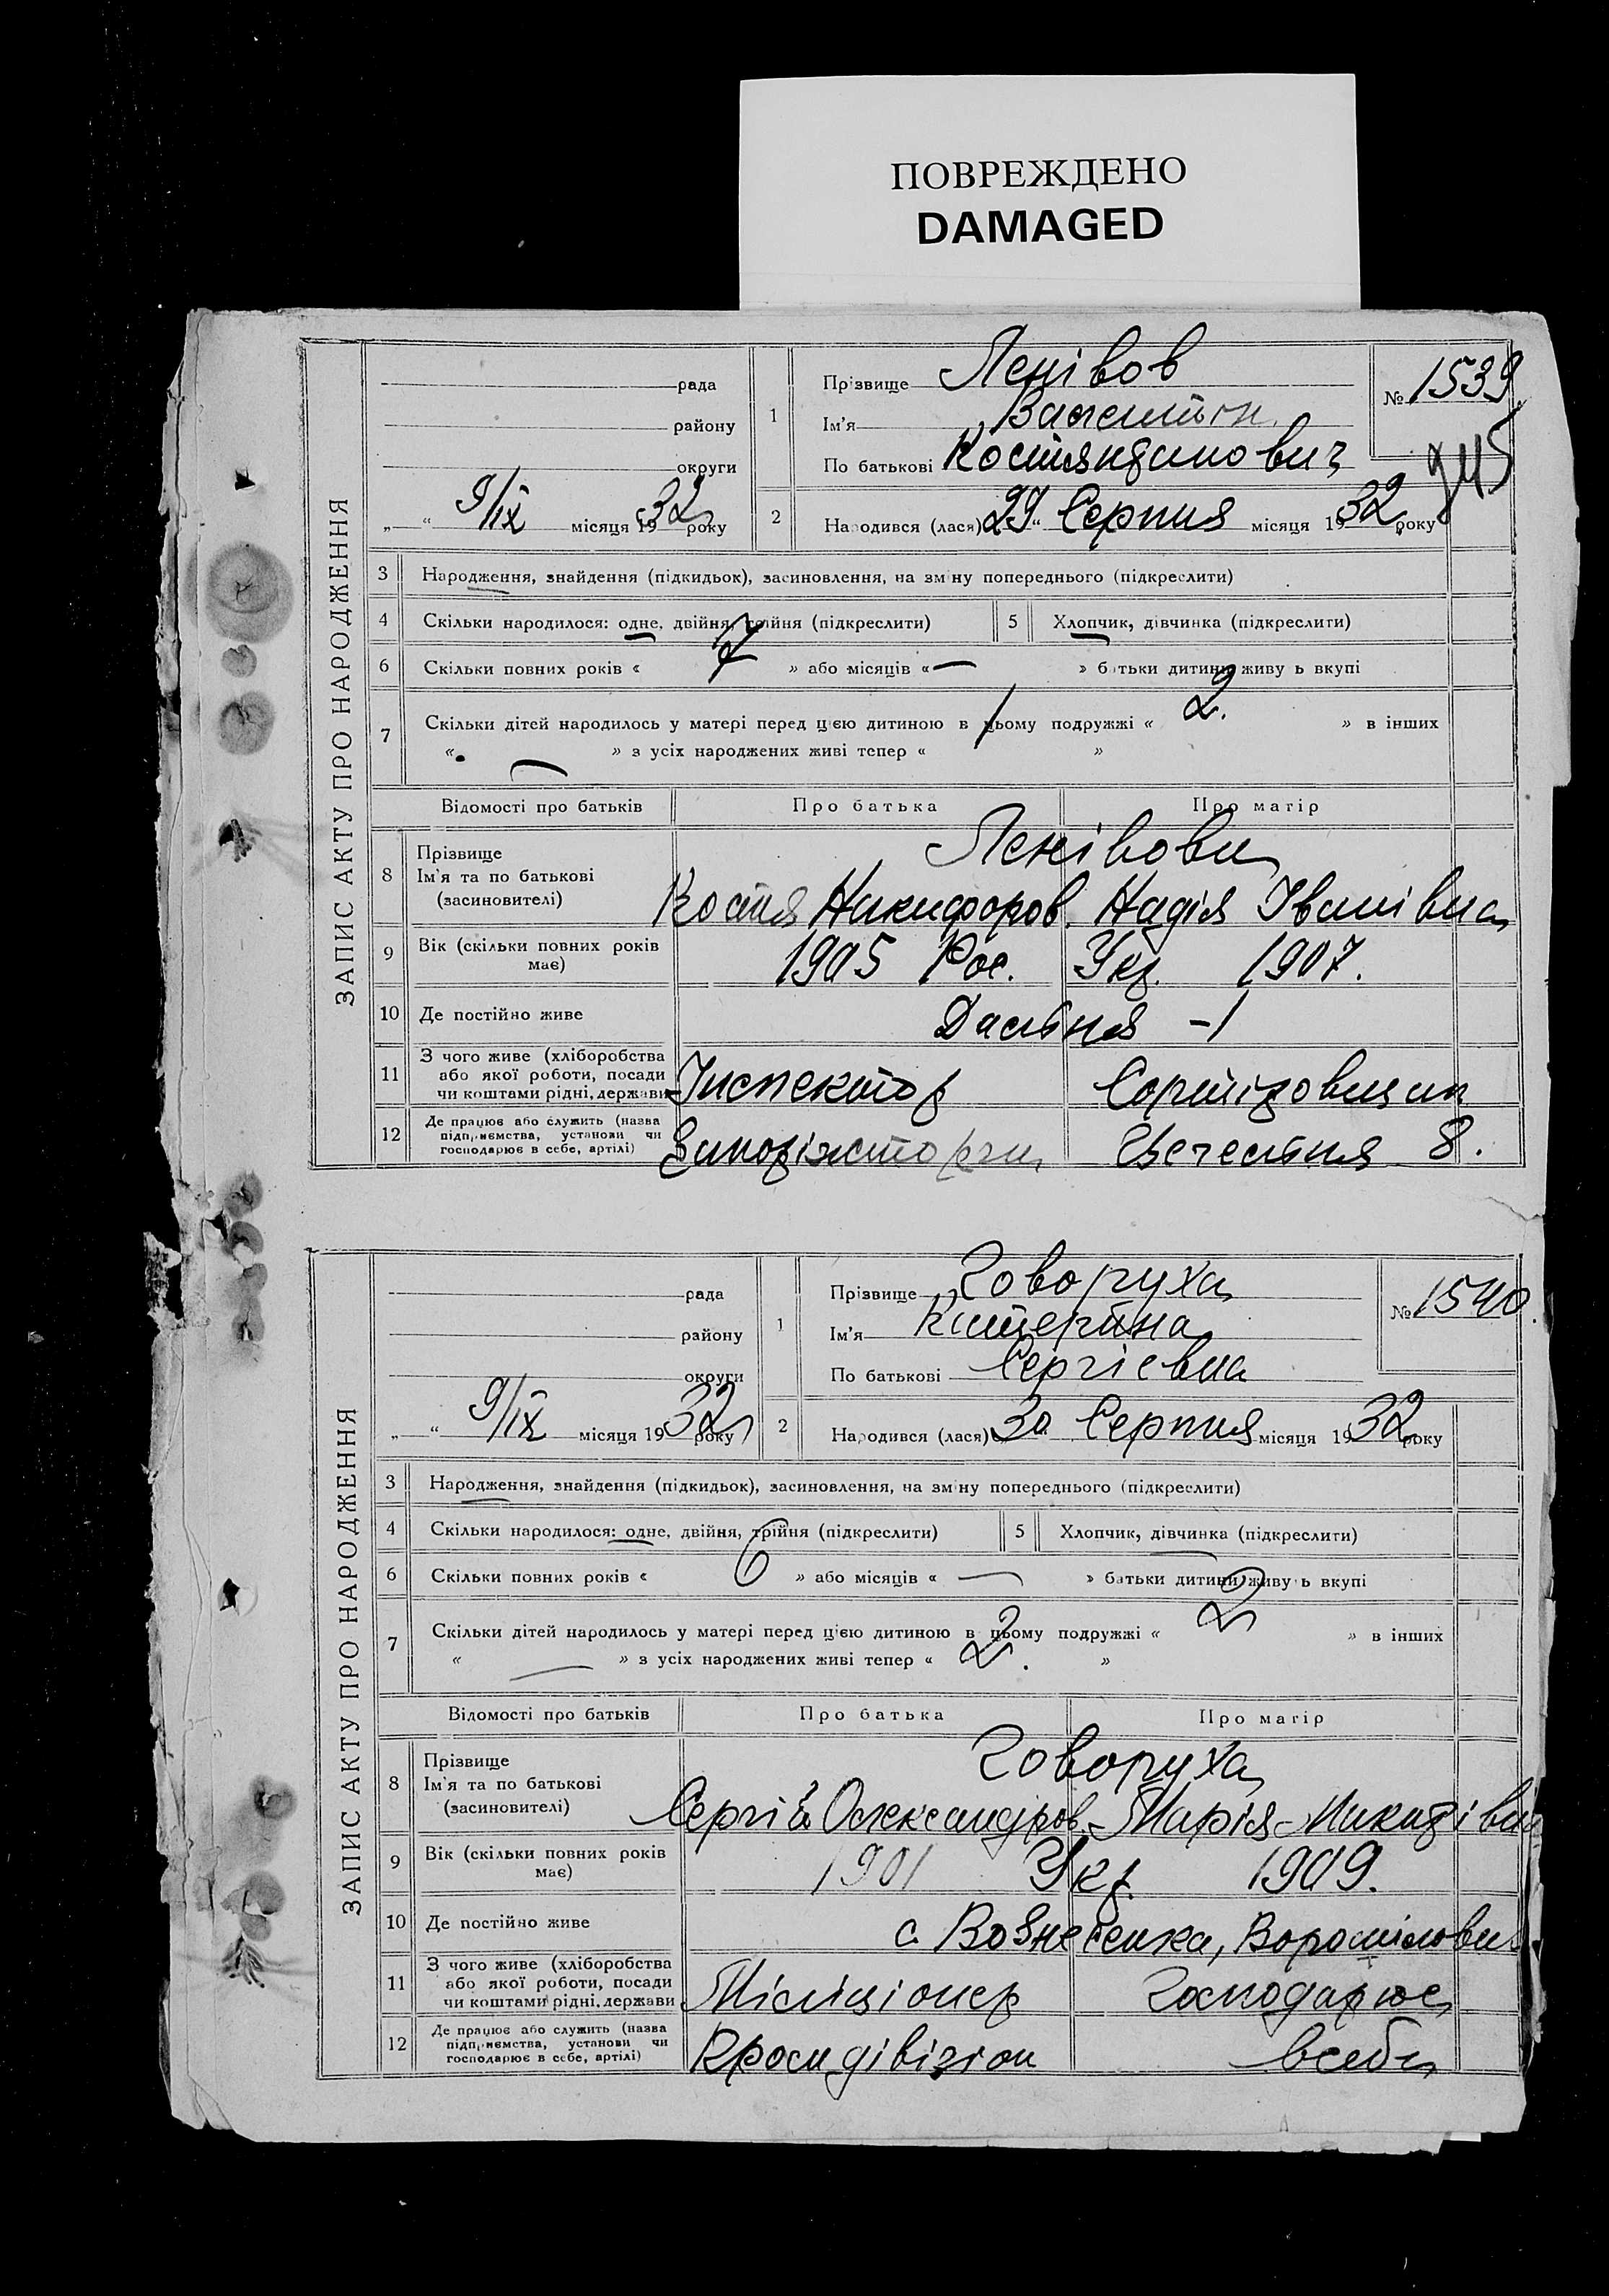 ПОВРЕЖДЕНО
DAMAGED
ЗАПИС АКТУ ПРО НАРОДЖЕННЯ
рада
району
округи
„ “ 9/IX місяця 1932 року
1
Прізвище Ленівов
Ім'я Валентин
По батькові Костянтинович
№ 1539
2
Народився (лася) 29 “ Серпня місяця 1932 року
3 Народження, знайдення (підкидьок), засиновлення, на зміну попереднього (підкреслити)
4 Скільки народилося: одне, двійня, трійня (підкреслити) 5 Хлопчик, дівчинка (підкреслити)
6 Скільки повних років « 7 » або місяців « — » батьки дитини живуть вкупі
7 Скільки дітей народилось у матері перед цією дитиною в цьому подружжі « 2. » в інших
« — » з усіх народжених живі тепер « »
Відомості про батьків Про батька Про матір
8 Прізвище
Ім'я та по батькові
(засиновителі)
Ленівови
Костя Никифоров. Надія Іванівна
9 Вік (скільки повних років має)
1905 Рос. Укр. 1907.
10 Де постійно живе
Дальня - 1
11 З чого живе (хліборобства або якої роботи, посади чи коштами рідні, держави
Інспектор
12 Де працює або служить (назва підприємства, установи чи господарює в себе, артілі)
8.
ЗАПИС АКТУ ПРО НАРОДЖЕННЯ
рада
району
округи
„ “ 9/IX місяця 1932 року
1
Прізвище Говоруха
Ім'я Катерина
По батькові Сергієвна
№ 1540.
2
Народився (лася) 30 Серпня місяця 1932 року
3 Народження, знайдення (підкидьок), засиновлення, на зміну попереднього (підкреслити)
4 Скільки народилося: одне, двійня, трійня (підкреслити) 5 Хлопчик, дівчинка (підкреслити)
6 Скільки повних років « 6 » або місяців « — » батьки дитини живуть вкупі
7 Скільки дітей народилось у матері перед цією дитиною в цьому подружжі « 2 » в інших
« — » з усіх народжених живі тепер « 2. »
Відомості про батьків Про батька Про матір
8 Прізвище
Ім'я та по батькові
(засиновителі)
Говоруха
Сергій Олександров. Марія Микитівна
9 Вік (скільки повних років має)
1901 Укр. 1909.
10 Де постійно живе
с. Вознесенка,
11 З чого живе (хліборобства або якої роботи, посади чи коштами рідні, держави
Міліціонер Господарює
12 Де працює або служить (назва підприємства, установи чи господарює в себе, артілі)
дівізіон в себе